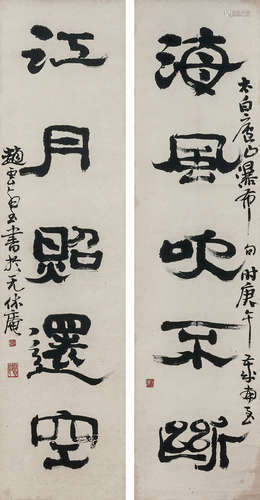 海風吹不斷
太白廬山瀑布句 時庚午
江月照還空
書於无休庵